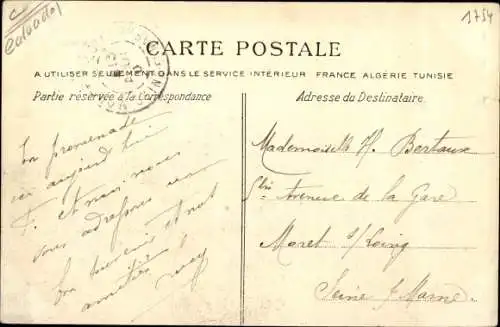 Calvados
1754
CARTE POSTALE
A UTILISER SEULEMENT DANS LE SERVICE INTÉRIEUR FRANCE ALGÉRIE TUNISIE
Partie réservée à la Correspondance
Adresse du Destinataire.
En promenade
ici aujourd'hui
F. et moi nous
vous adressons un
bon souvenir et nos
amitiés
Mademoiselle H. Bertaux
Avenue de la Gare
Moret s/Loing
Seine & Marne